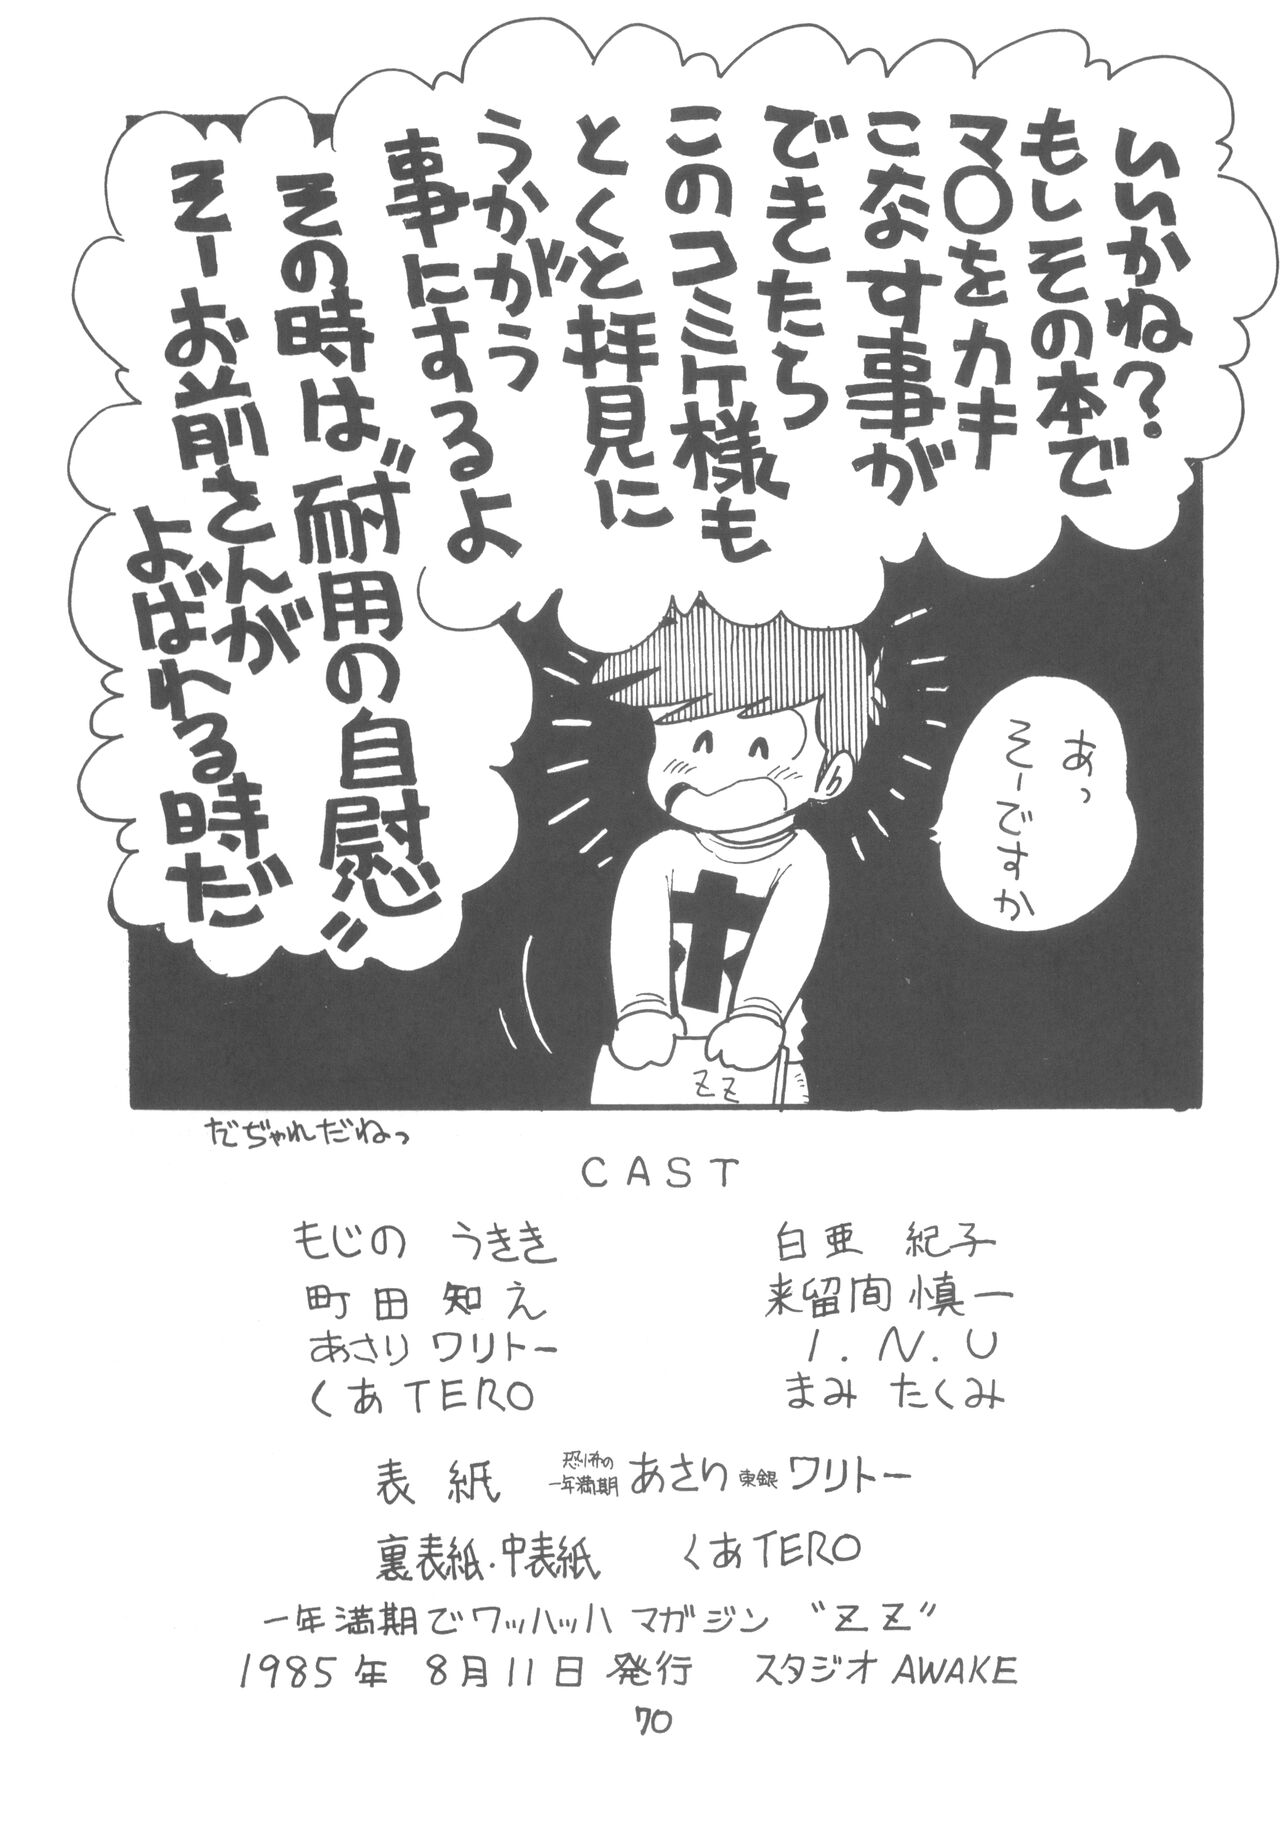 いいかね?
もしその本で
マ〇をカキ
こなす事が
できたら
このコミケ様も
とくと拝見に
うかがう
事にするよ
その時は
"耐用の自慰"
そーお前さんが
よばれる時だ
あっ
そーですか
ZZ
だぢゃれだねっ
CAST
もじの うきき
白亜 紀子
町田 知え
来留間 慎一
あさり ワリトー
I.N.U
くあTERO
まみ たくみ
表紙 恐怖の一年満期 あさり 東銀 ワリトー
裏表紙・中表紙 くあTERO
一年満期でワッハッハ マガジン "ZZ"
1985年 8月11日 発行 スタジオ AWAKE
70